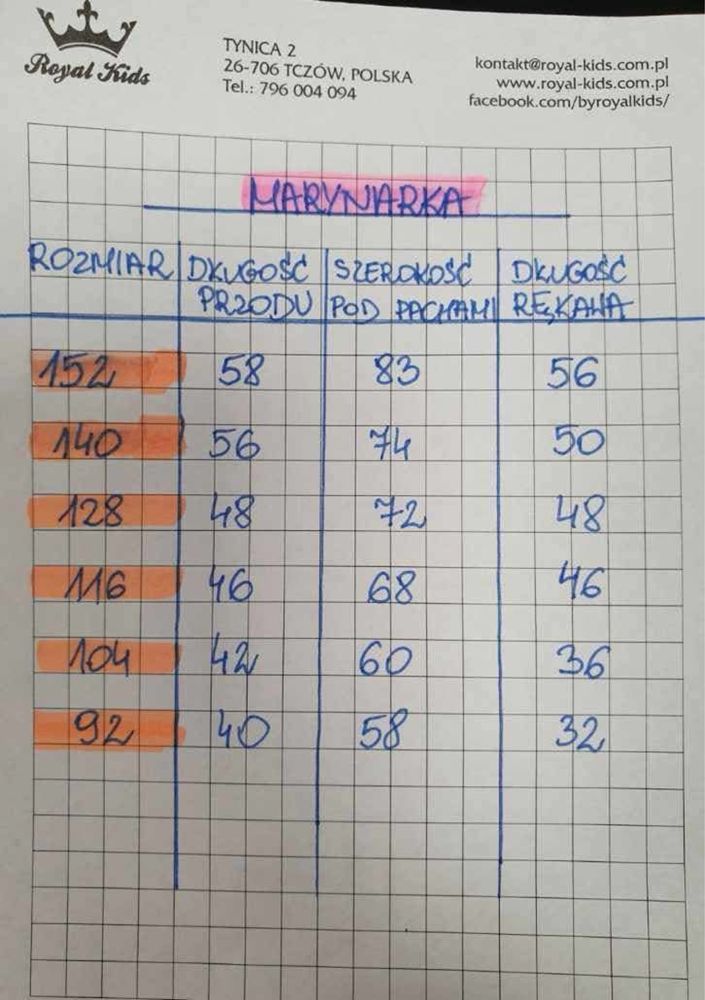 Royal Kids
TYNICA 2
26-706 TCZÓW, POLSKA
Tel.: 796 004 094
kontakt@royal-kids.com.pl
www.royal-kids.com.pl
facebook.com/byroyalkids/
MARYNARKA
ROZMIAR DŁUGOŚĆ SZEROKOŚĆ DŁUGOŚĆ
PRZODU POD PACHAMI RĘKAWA
152 58 83 56
140 56 74 50
128 48 72 48
116 46 68 46
104 42 60 36
92 40 58 32